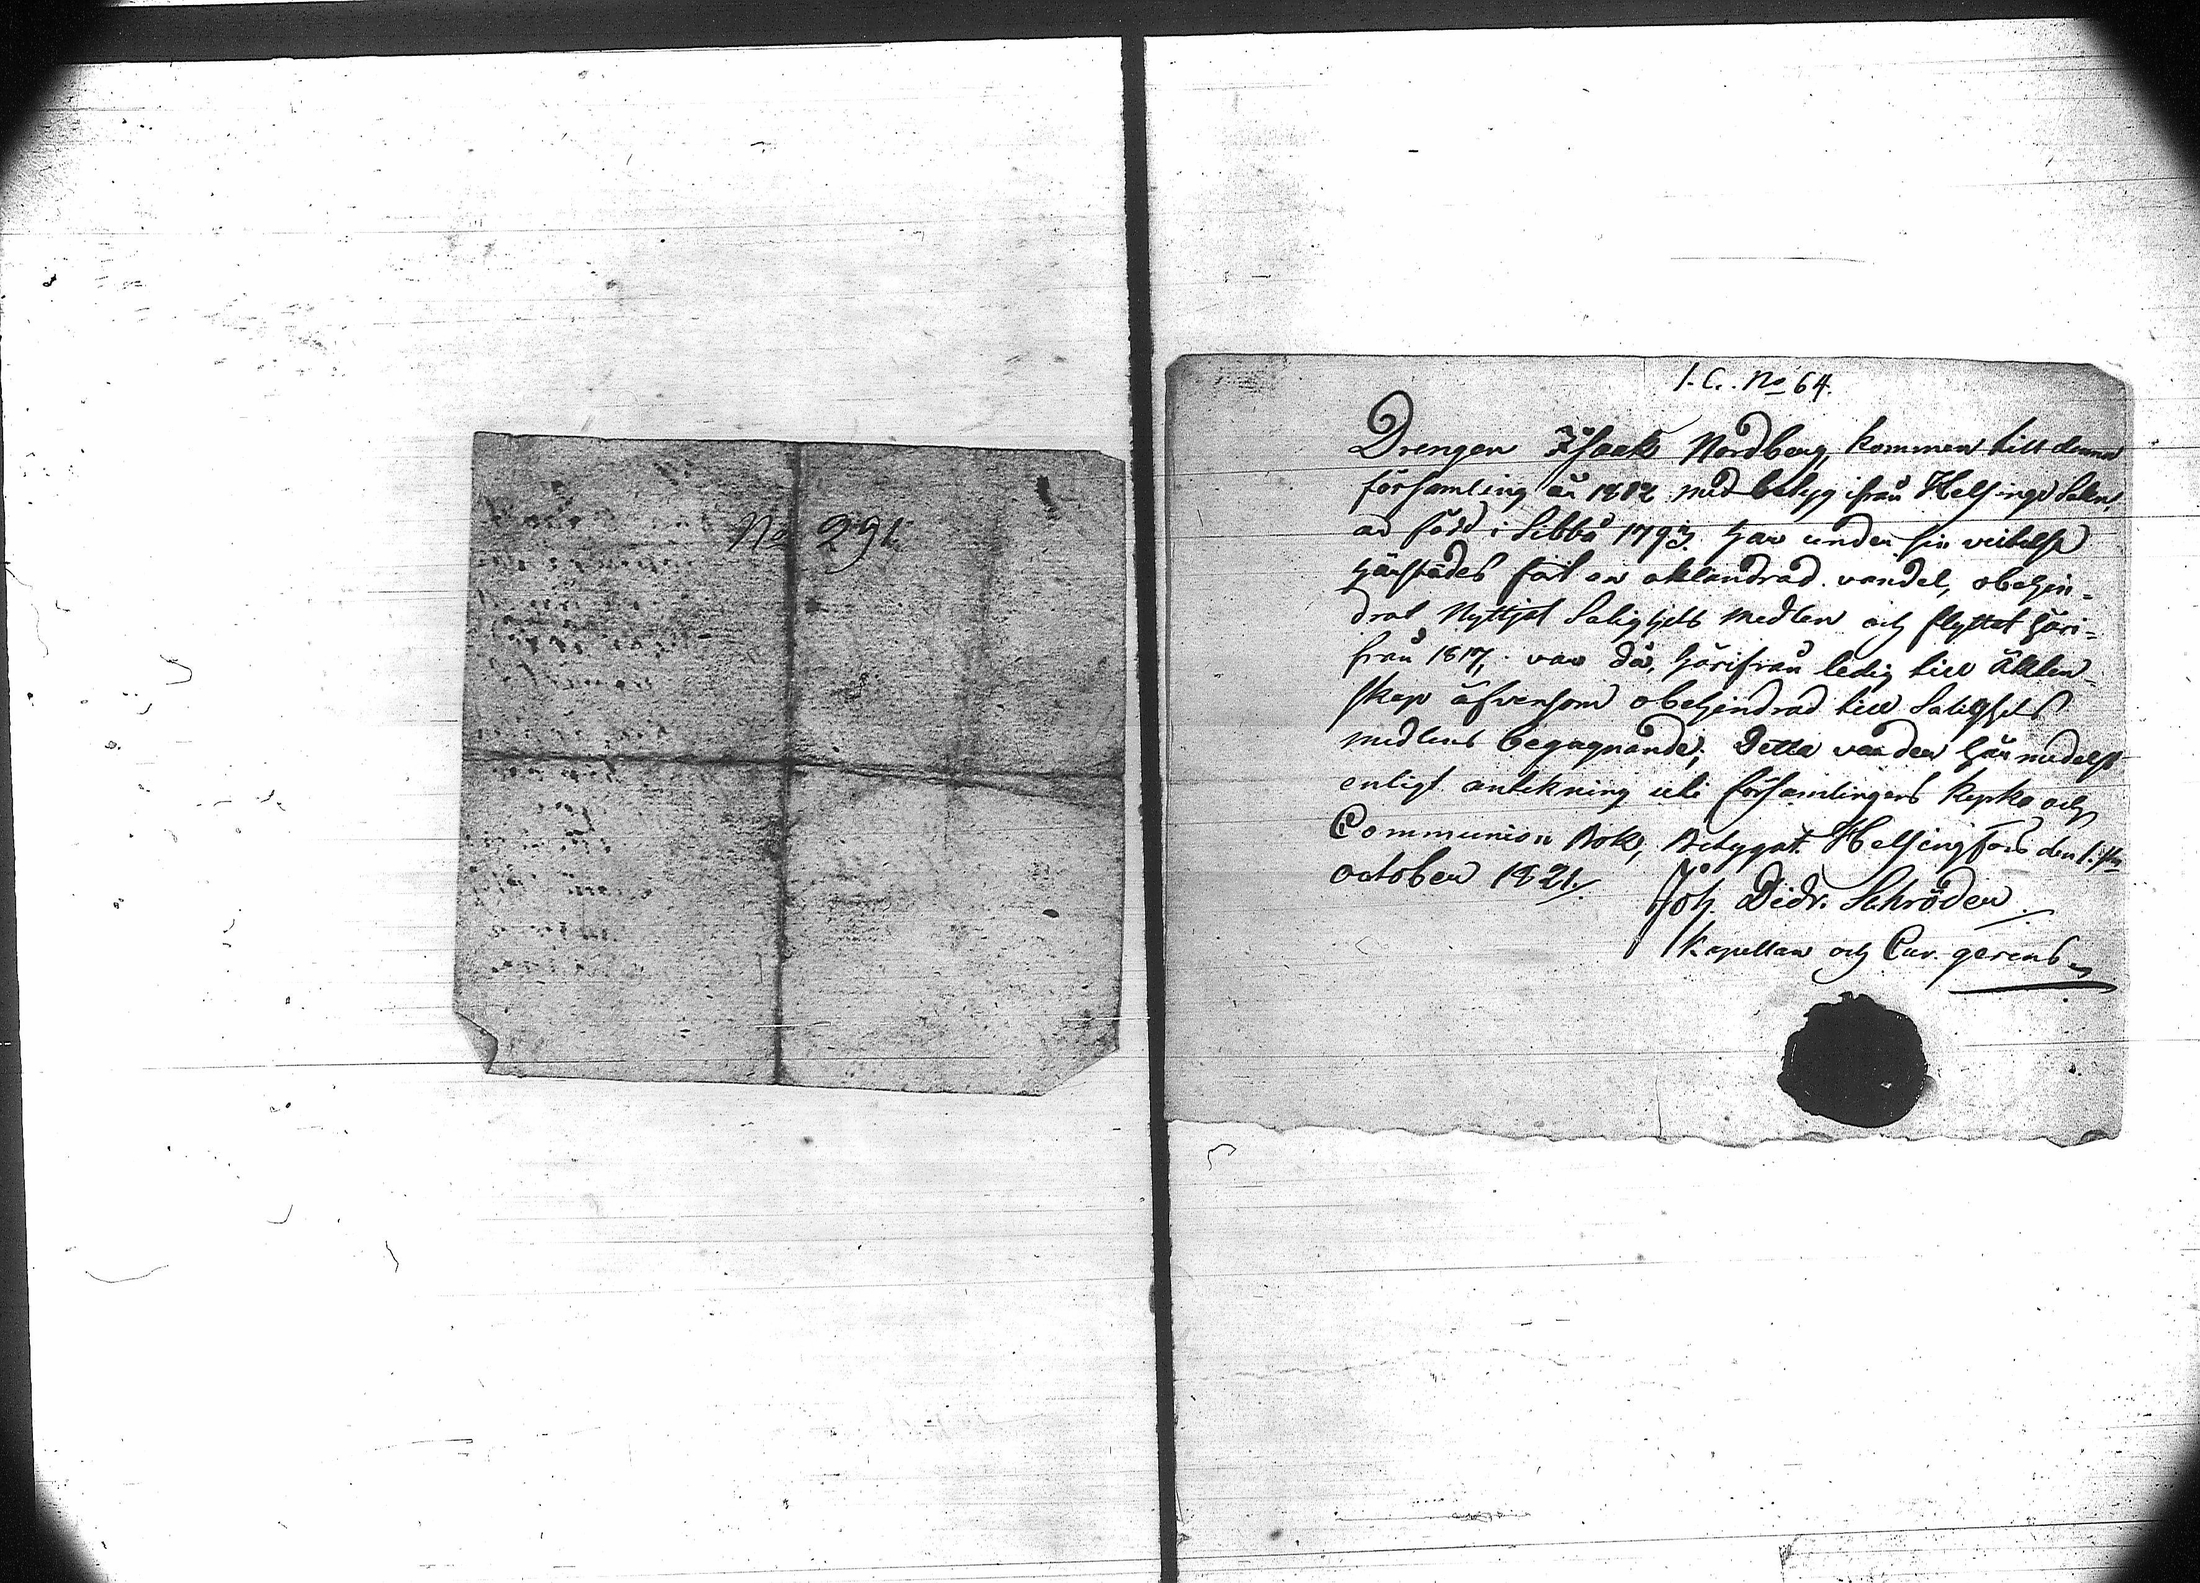 No 291
I. C. No 64.
Drengen Isaak Nordberg, kommen till denna
församling år 1812 med betyg ifrån Helsinge Sokn,
är född i Sibbo 1793. har under sin vistelse
härstädes fört en oklandrad vandel, obehin-
drat Nyttjat Salighets medlen och flyttat häri-
från 1817, var då, härifrån ledig till Äkten-
skap äfvensom obehindrad till Salighets
medlens begagnande; Detta varder härmedelst
enligt antekning uti församlingens Kyrko och
Communion Bok, Betygat. Helsingfors den 1.ste
october 1821.
Joh. Didr. Schröder.
Kapellan och Cur. gerens